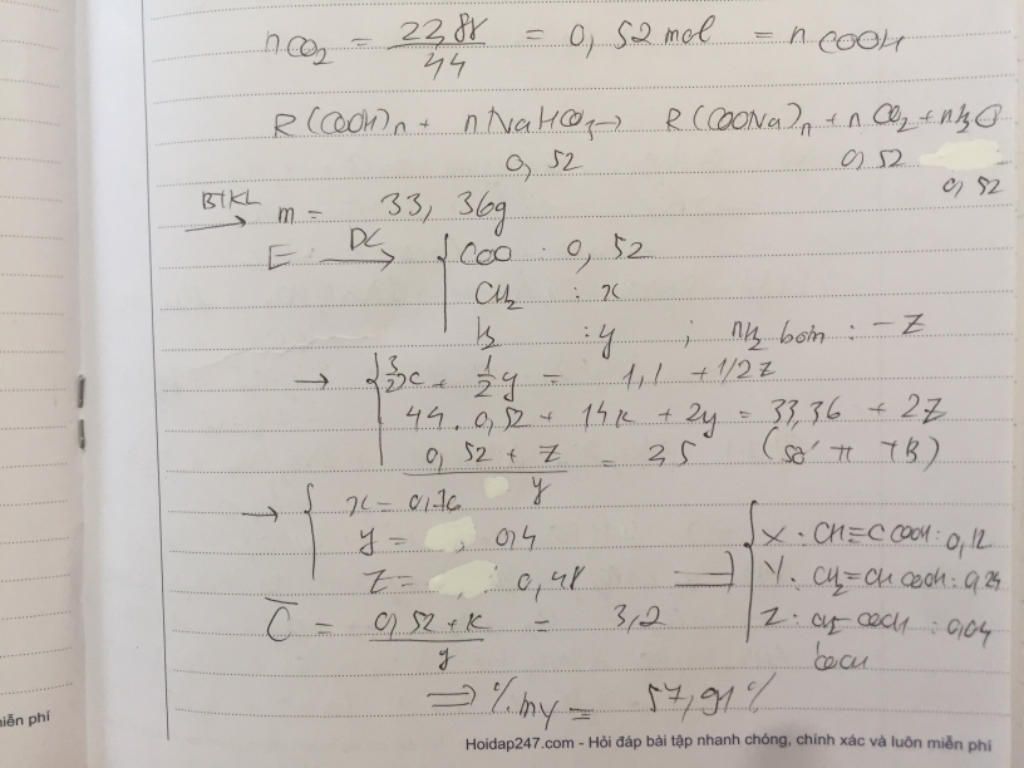 nCO₂ = 22,88/44 = 0,52 mol = nCOOH
R(COOH)n + nNaHCO₃ → R(COONa)n + nCO₂ + nH₂O
0,52 0,52
0,52
BTKL → m = 33,36g
E ĐC → { COO : 0,52
CH₂ : x
H₂ : y ; nH₂ bơm : -z
→ { 3/2x + 1/2y = 1,1 + 1/2z
44.0,52 + 14x + 2y = 33,36 + 2z
(0,52 + z)/y = 2,5 (số π TB)
→ { x = 0,76
y = 0,4
z = 0,48
C̄ = (0,52 + x)/y = 3,2
=> { X. CH≡C COOH : 0,12
Y. CH₂=CH COOH : 0,24
Z : CH₂ COOH : 0,04
COOH
=> %mY = 57,91%
iễn phí
Hoidap247.com - Hỏi đáp bài tập nhanh chóng, chính xác và luôn miễn phí